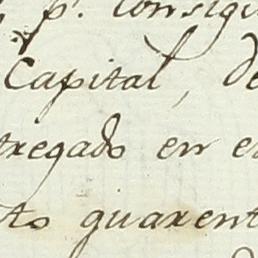 p. consigi
Capital, de
tregado en e
to quarent